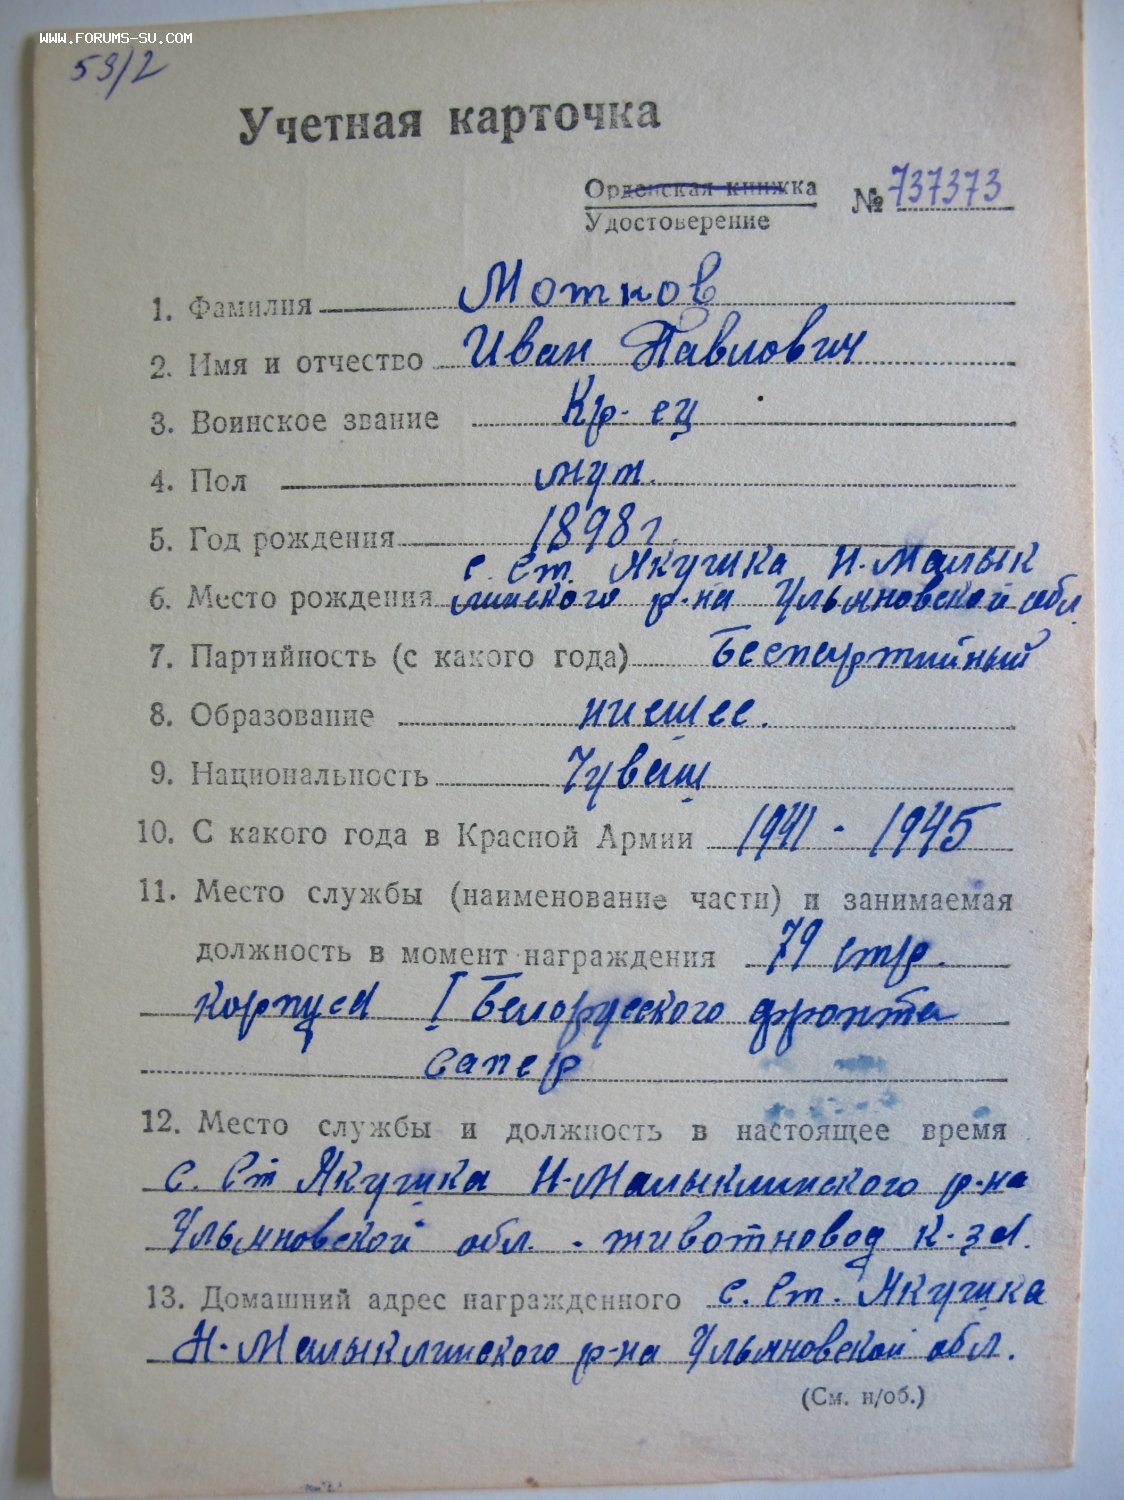 WWW.FORUMS-SU.COM
59/2
Учетная карточка
Орденская книжка
Удостоверение
№ 737373
1. Фамилия Мотков
2. Имя и отчество Иван Павлович
3. Воинское звание Кр-ец
4. Пол муж.
5. Год рождения 1898 г.
с. Ст. Якушка Н-Малык
6. Место рождения линского р-на Ульяновской обл
7. Партийность (с какого года) Беспартийный
8. Образование низшее.
9. Национальность Чуваш
10. С какого года в Красной Армии 1941 - 1945
11. Место службы (наименование части) и занимаемая
должность в момент награждения 79 стр.
корпуса I Белорусского фронта
сапер
12. Место службы и должность в настоящее время
с. Ст Якушка Н-Малыклинского р-на
Ульяновской обл. - животновод к-за.
13. Домашний адрес награжденного с. Ст. Якушка
Н-Малыклинского р-на Ульяновской обл.
(См. н/об.)